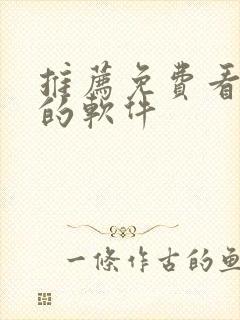 推薦免費看
的軟件
一條作古的魚